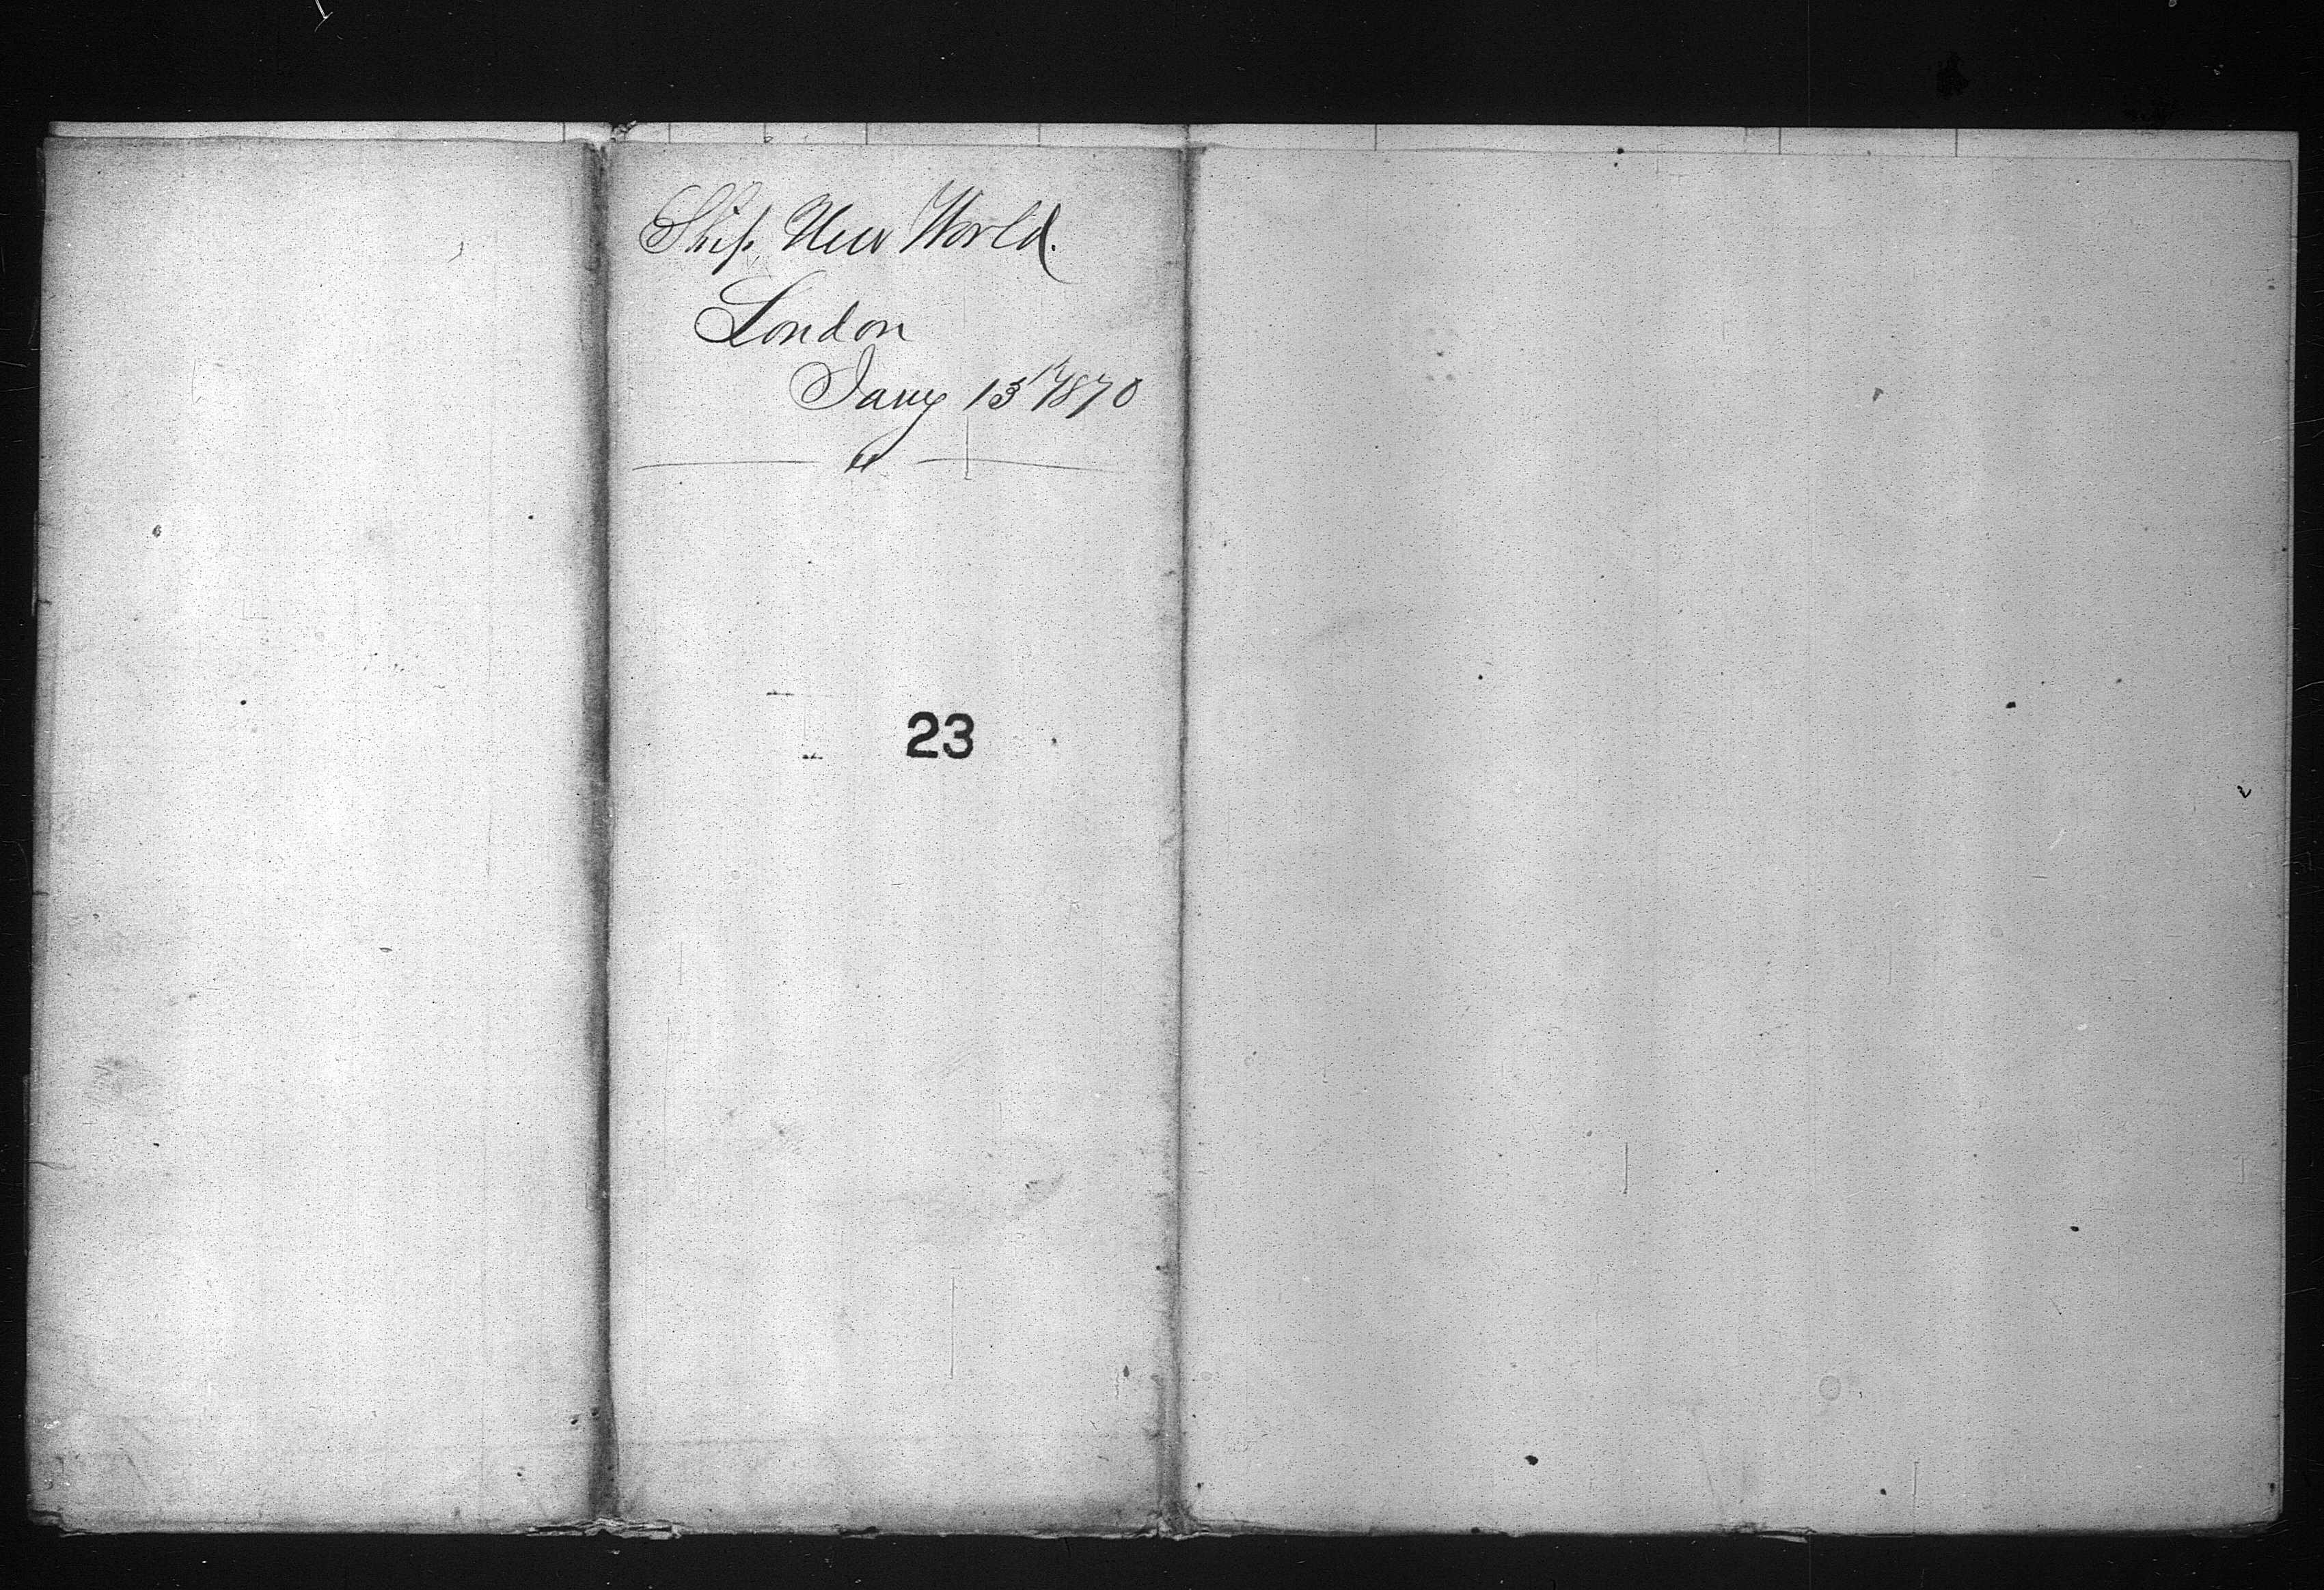 Ship New World.
London
Jany 13th 1870
23